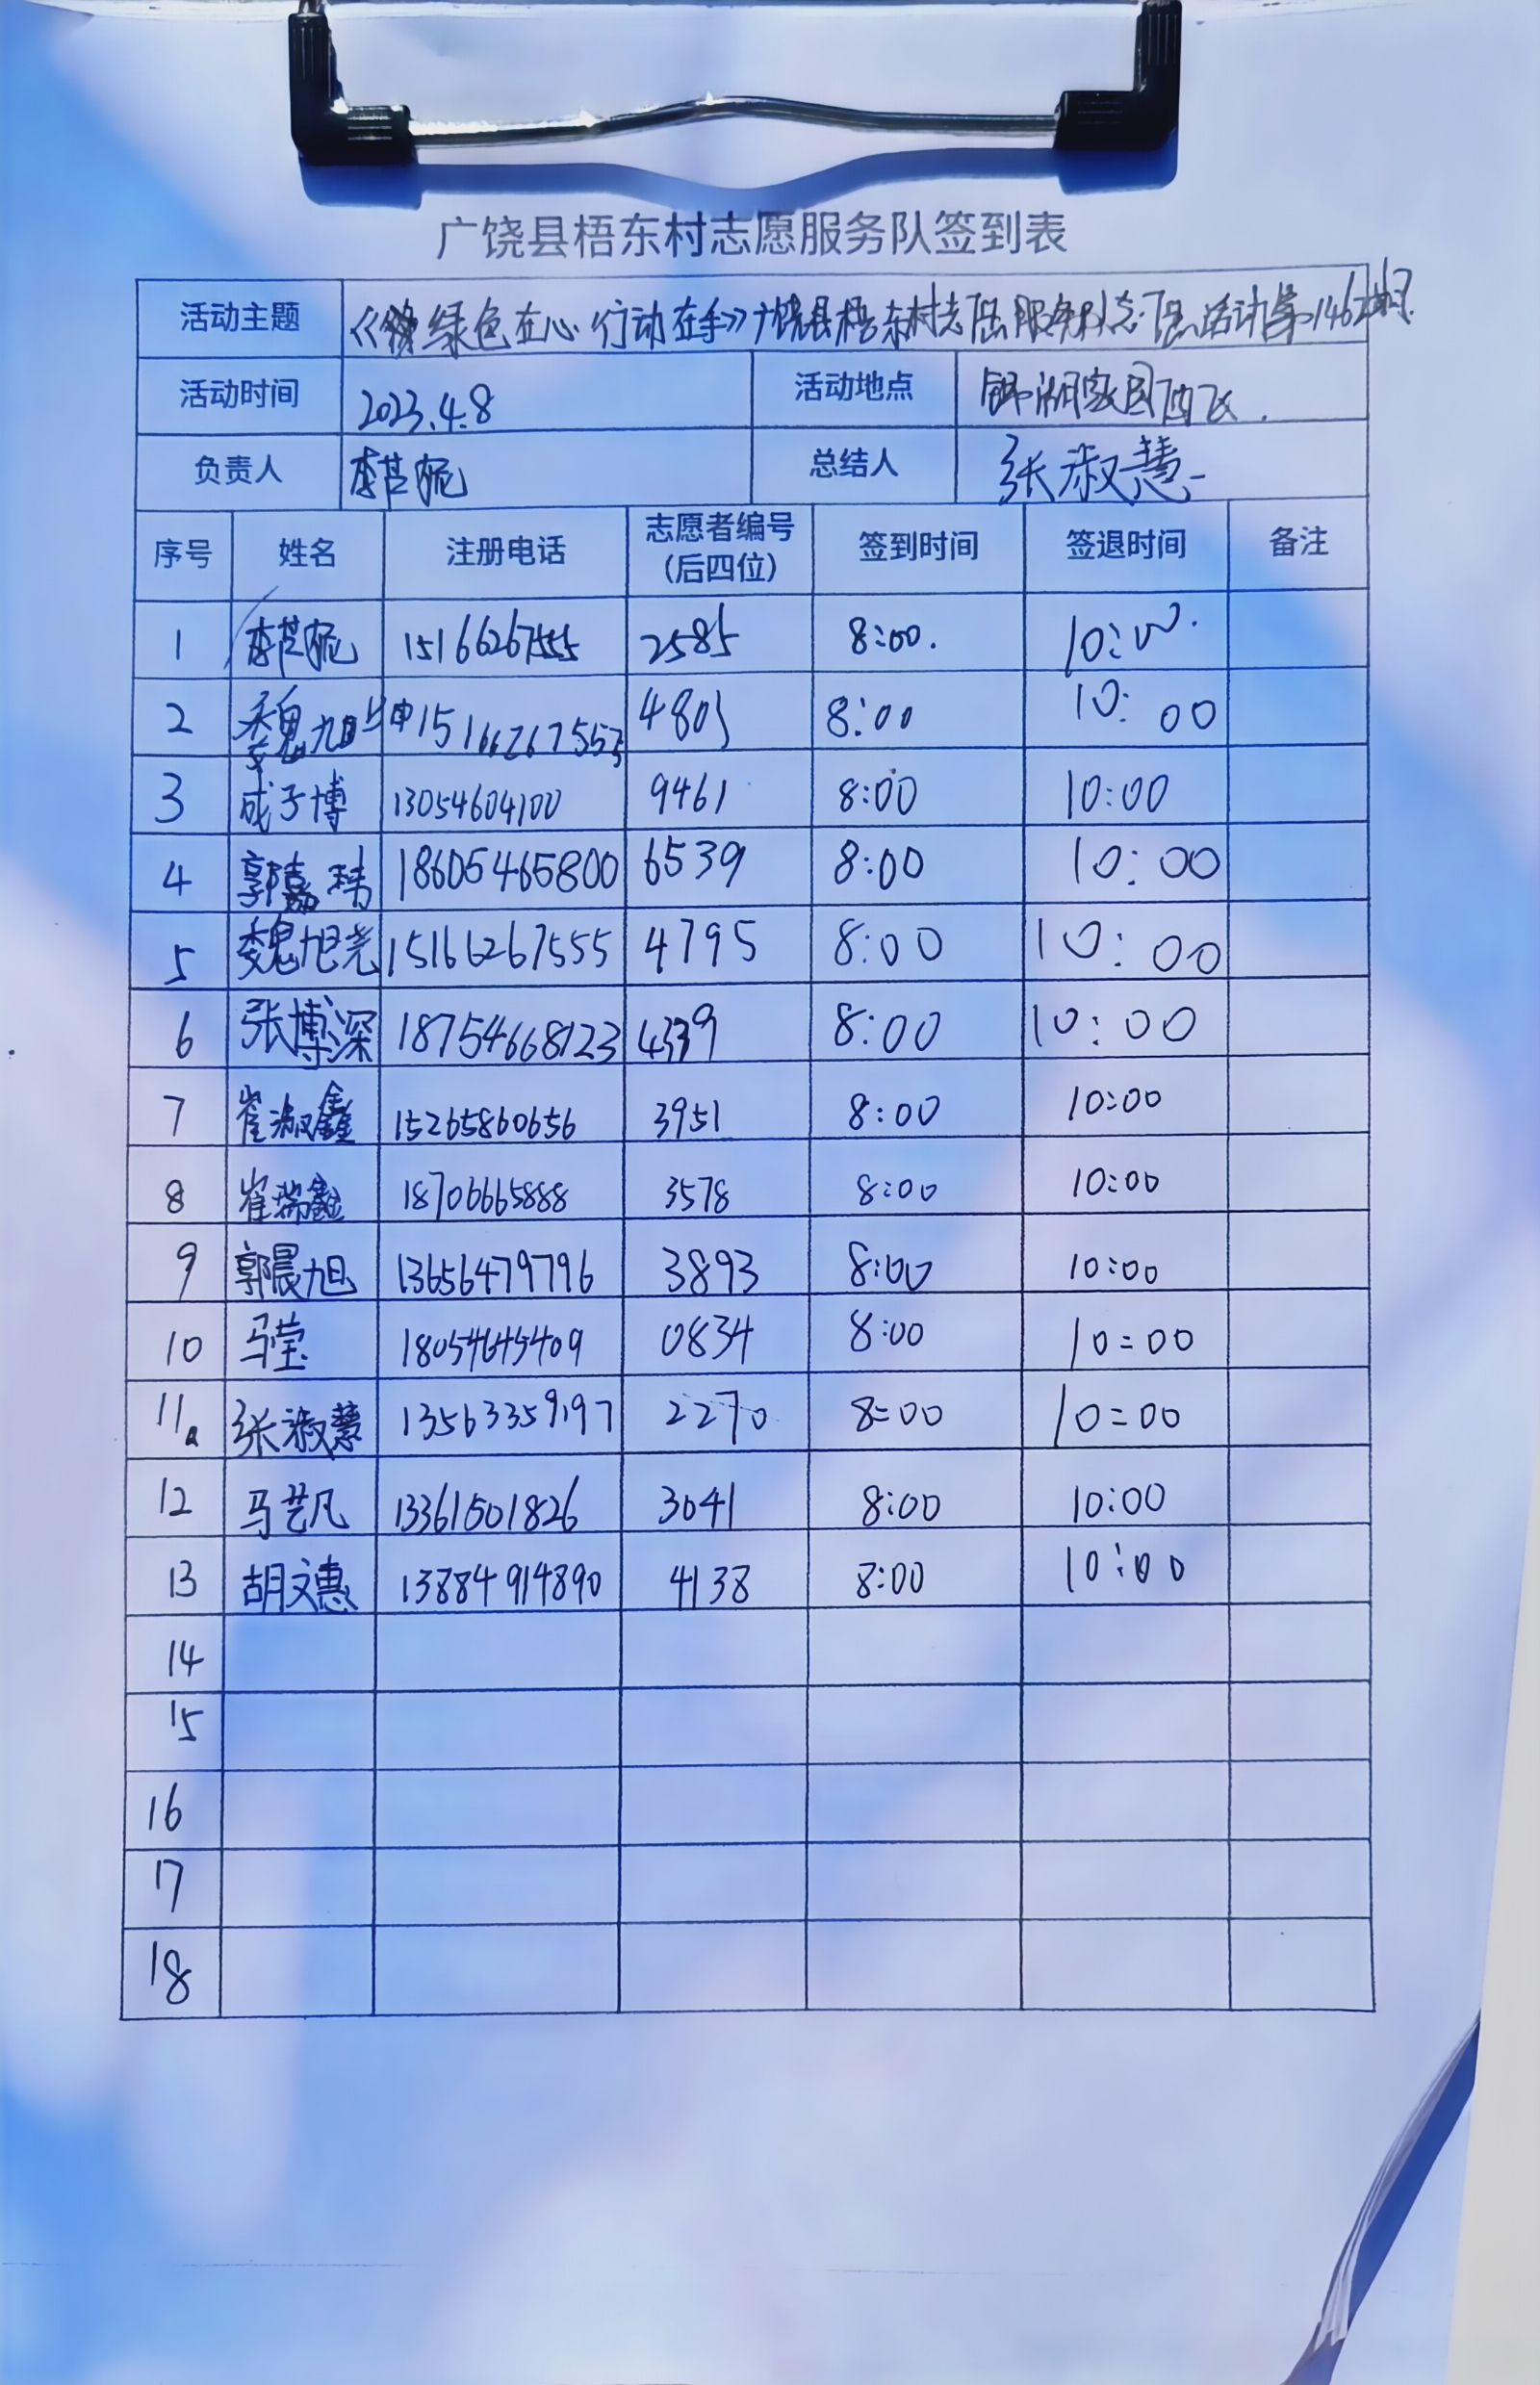 广饶县梧东村志愿服务队签到表
活动主题 《绿色在心 行动在手》广饶县梧东村志愿服务队志愿活动第1462期
活动时间 2023.4.8 活动地点 锦湖家园西区.
负责人 李芸妮 总结人 张淑慧
序号 姓名 注册电话 志愿者编号(后四位) 签到时间 签退时间 备注
1 李芸妮 15166267555 2585 8:00. 10:00.
2 魏旭 15166267555 4803 8:00 10:00
3 成子博 13054604100 9461 8:00 10:00
4 郭嘉琦 18605465800 6539 8:00 10:00
5 魏旭尧 15166267555 4795 8:00 10:00
6 张博深 18754668123 4339 8:00 10:00
7 崔淑鑫 15265860656 3951 8:00 10:00
8 崔瑞鑫 18706665888 3578 8:00 10:00
9 郭晨旭 13656479796 3893 8:00 10:00
10 马莹 18054645409 0834 8:00 10=00
11 张淑慧 13563359197 2270 8=00 10=00
12 马艺凡 13361501826 3041 8:00 10:00
13 胡文惠 13884914890 4138 8:00 10:00
14
15
16
17
18